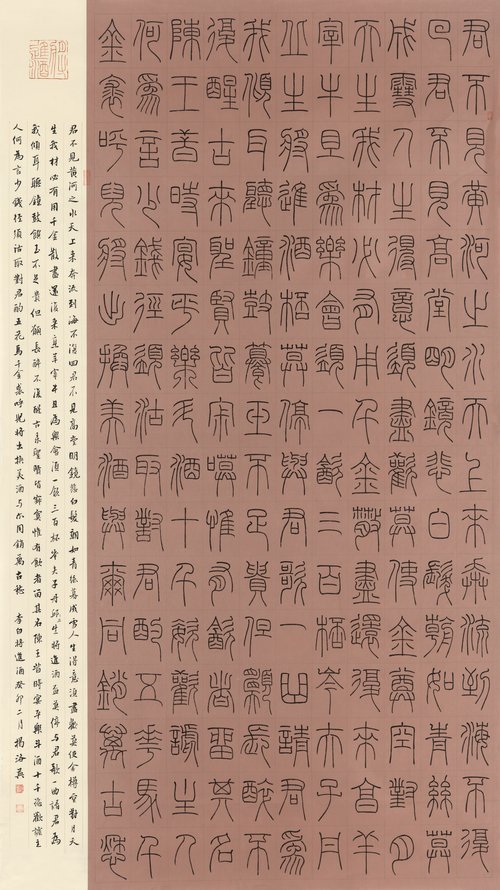 君不見黃河之水天上來奔流到海不復
回君不見高堂明鏡悲白髮朝如青絲暮
成雪人生得意須盡歡莫使金尊空對月
天生我材必有用千金散盡還復來亯羊
宰牛且為樂會須一飲三百杯岑夫子丹
丘生將進酒杯莫停與君歌一曲請君為
我傾耳聽鐘鼓饌玉不足貴但願長醉不
復醒古來聖賢皆寂寞惟有飲者留其名
陳王昔時宴平樂斗酒十千恣歡謔主人
何為言少錢徑須沽取對君酌五花馬千
金裘呼兒將出換美酒與爾同銷萬古愁
將進酒
君不見黃河之水天上來奔流到海不復回君不見高堂明鏡悲白髮朝如青絲暮成雪人生得意須盡歡莫使金樽空對月天
生我材必有用千金散盡還復來烹羊宰牛且為樂會須一飲三百杯岑夫子丹邱生將進酒杯莫停與君歌一曲請君為
我傾耳聽鐘鼓饌玉不足貴但願長醉不復醒古來聖賢皆寂寞惟有飲者留其名陳王昔時宴平樂斗酒十千恣歡謔主
人何為言少錢徑須沽取對君酌五花馬千金裘呼兒將出換美酒與爾同銷萬古愁 李白將進酒癸卯二月楊